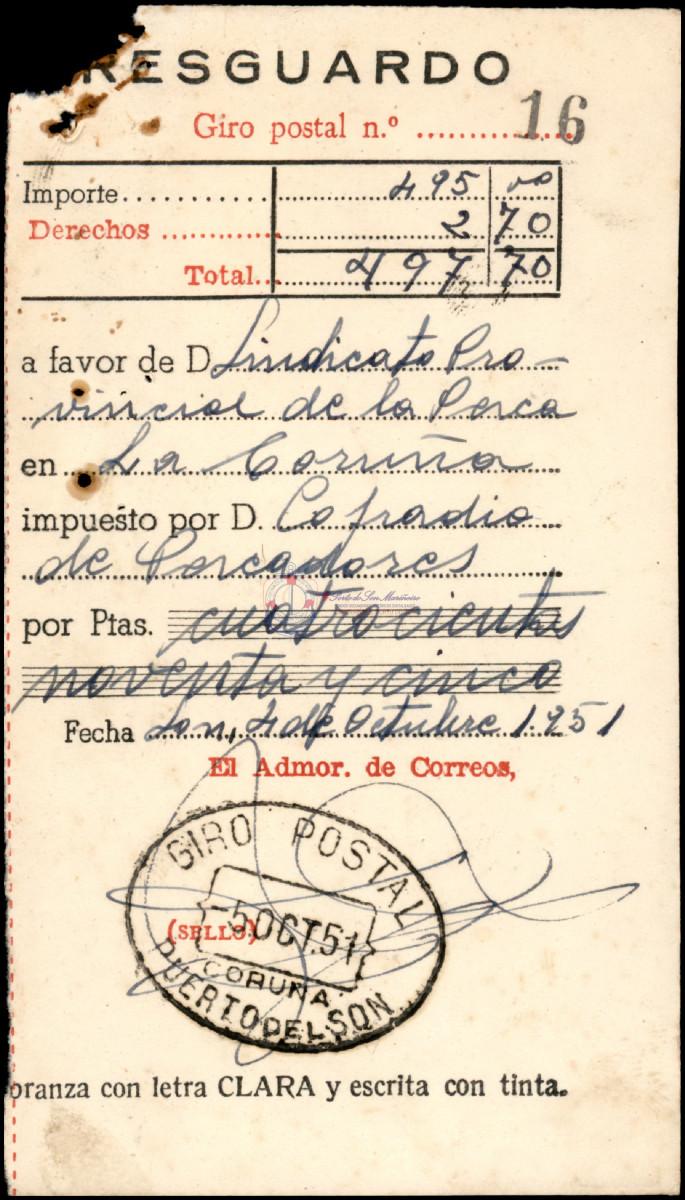 RESGUARDO
Giro postal n.º 16
Importe 495 00
Derechos 2 70
Total 497 70
a favor de D. Sindicato Pro-
vincial de la Pesca
en La Coruña
impuesto por D. Cofradia
de Pescadores
Porto do Son Mariñeiro
por Ptas. cuatrocientas
noventa y cinco
Fecha Son, 4 de Octubre 1951
El Admor. de Correos,
GIRO POSTAL
-5 OCT.51
(SELLO)
CORUÑA
PUERTO DEL SON
branza con letra CLARA y escrita con tinta.